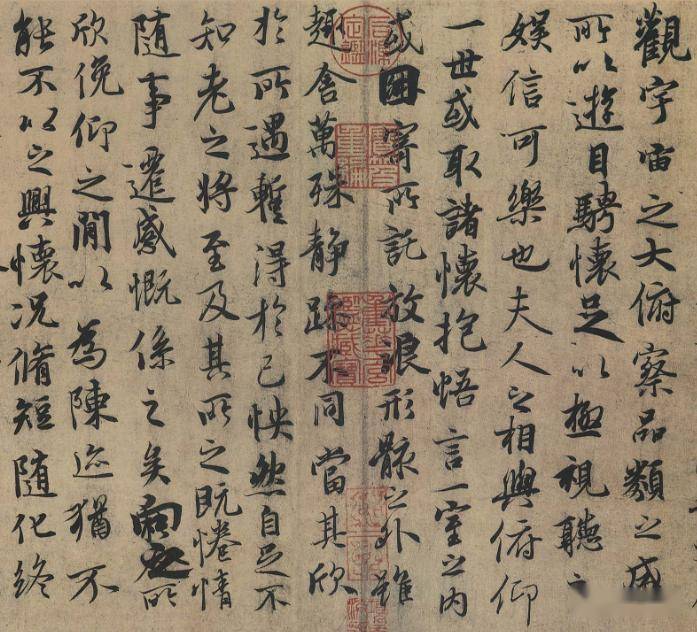 觀宇宙之大俯察品類之盛
所以遊目騁懷足以極視聽之
娛信可樂也夫人之相與俯仰
一世或取諸懷抱悟言一室之內
或因寄所託放浪形骸之外雖
趣舍萬殊靜躁不同當其欣
於所遇暫得於己怏然自足不
知老之將至及其所之既惓情
隨事遷感慨係之矣向之所
欣俛仰之閒以為陳迹猶不
能不以之興懷況脩短隨化終